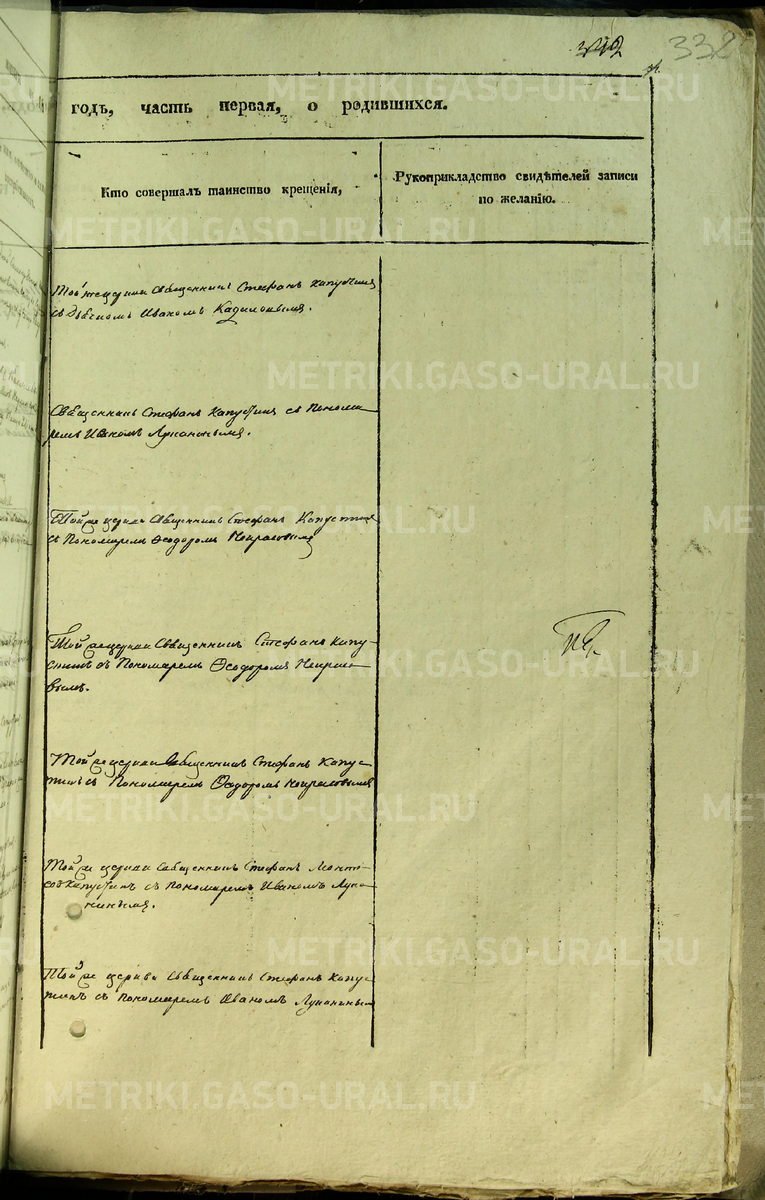 332
годъ, часть первая, о родившихся.
Кто совершалъ таинство крещенія,
Рукоприкладство свидѣтелей записи
по желанію.
Той же церкви Священникъ Стефанъ Капустинъ
съ Иваномъ
Священникъ Стефанъ Капустинъ съ Понома
ремъ Иваномъ Лукинымъ.
Той же церкви Священникъ Стефанъ Капустинъ
съ Пономаремъ Ѳеодоромъ Некрасовымъ
Той же церкви Священникъ Стефанъ Капу-
стинъ съ Пономаремъ Ѳеодоромъ Некрасо-
вымъ.
Той же церкви Священникъ Стефанъ Капус-
тинъ съ Пономаремъ Ѳеодоромъ Некрасовымъ
Той же церкви Священникъ Стефанъ
Капустинъ съ Пономаремъ Иваномъ
Той же церкви Священникъ Стефанъ Капус-
тинъ съ Пономаремъ Иваномъ
METRIKI.GASO-URAL.RU